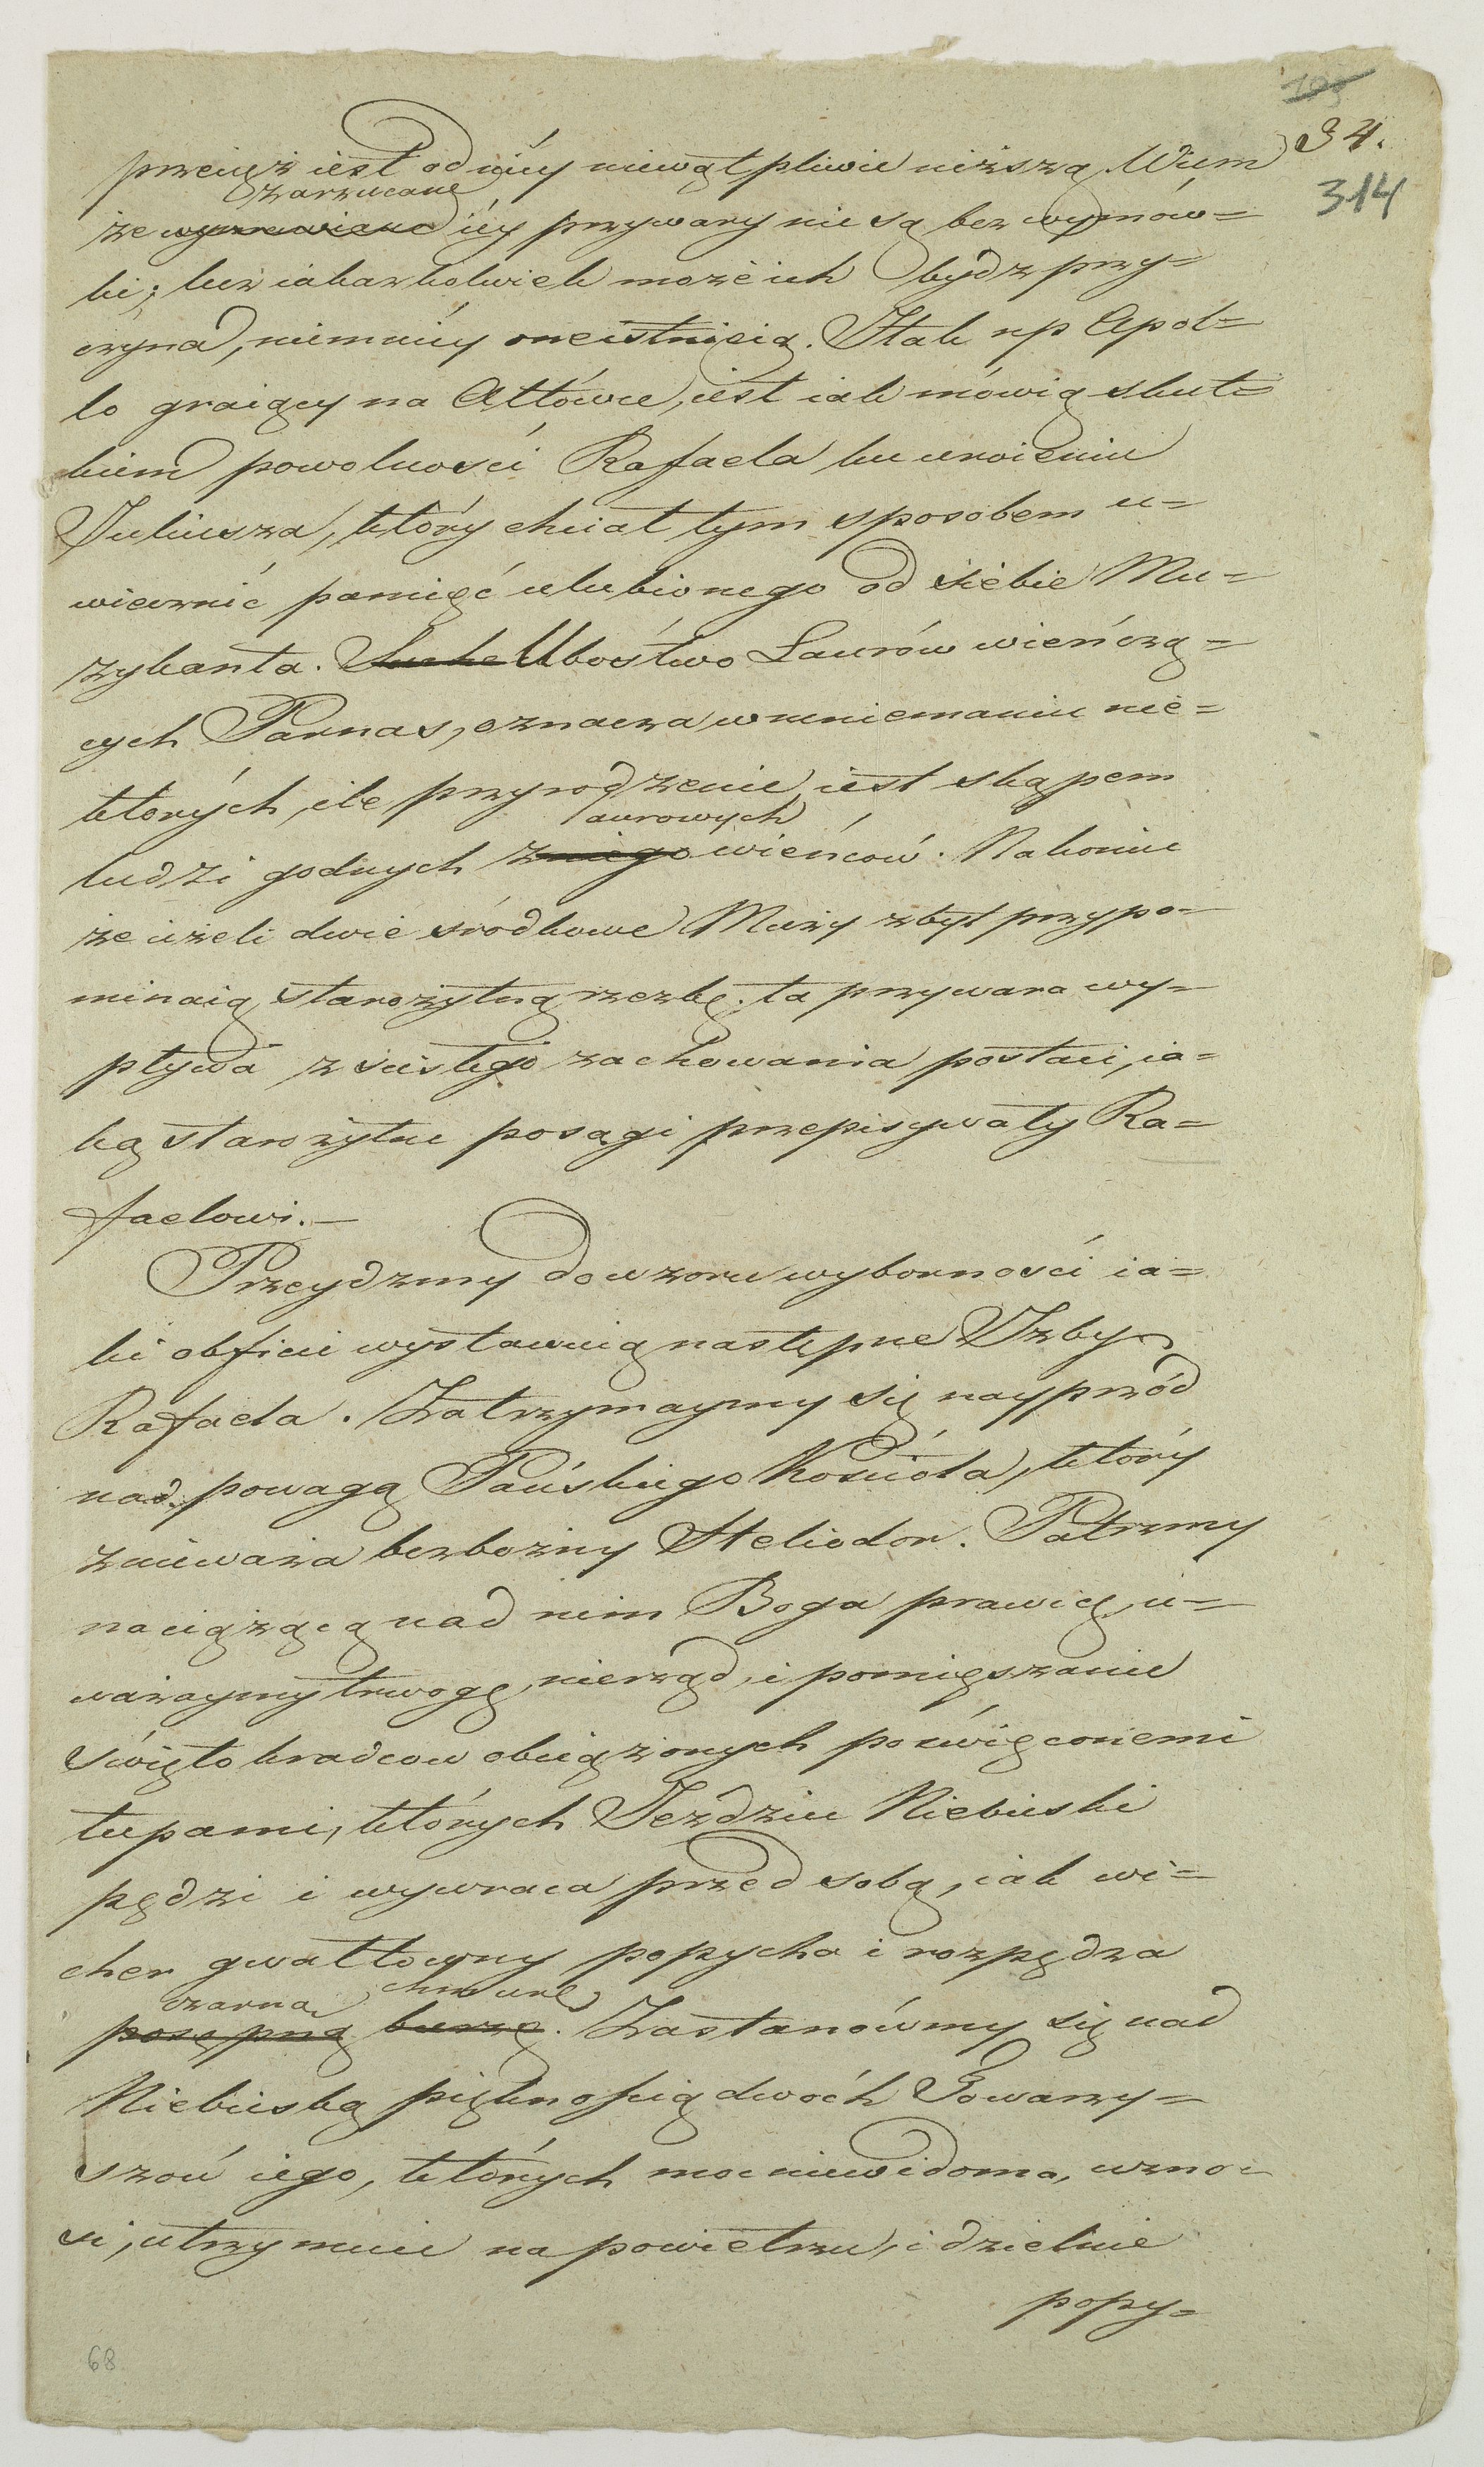 105
34.
314
przecięż iest od niéy niewątpliwie niższą. Wiem
zarzucane
że wymawiane iéy przywary nie są bez wymów=
ki; lecz iakażkolwiek może ich bydz przy=
czyna, niemniéy one istnieią. I tak np Apol=
lo graiący na Altówce, iest iak mówią skut=
kiem powolności Rafaela ku uroieniu
Juliusza, który chciał tym sposobem u=
wiecznić pamięć ulubionego od siebie Mu=
zykanta. Ubóstwo Laurów wieńczą=
cych Parnas, oznacza w mniemaniu nie=
których, ile przyrodzenie iest skąpem
aurowych
ludzi godnych z niego wieńców. Nakoniec
że ieżeli dwie śródkowe Muzy zbyt przypo=
minaią starożytną rzezbę, ta przywara wy=
pływa z ścisłego zachowania postaci, ia=
ką starożytne posągi przepisywały Ra=
faelowi.—
Przeydzmy do wzoru wybornosci ia=
ki obficie wystawuią następne Izby
Rafaela. Zatrzymaymy się nayprzód
nad powagą Pańskiego Kościoła, który
znieważa bezbożny Heliodor. Patrzmy
na ciążącą nad nim Boga prawicę, u=
ważaymy trwogę, nierząd, i pomięszanie
świętokradcow obciążonych poświęconemi
łupami, których Jeździec Niebieski
pędzi i wywraca przed sobą, iak wi=
cher gwałtowny popycha i rozpędza
czarną chmurę
posępną burzę. Zastanówmy się nad
Niebieską pięknością dwóch Towarzy=
szów iego, których moc niewidoma, wzno=
si, utrzymuie na powietrzu, i dzielnie
popy=
68